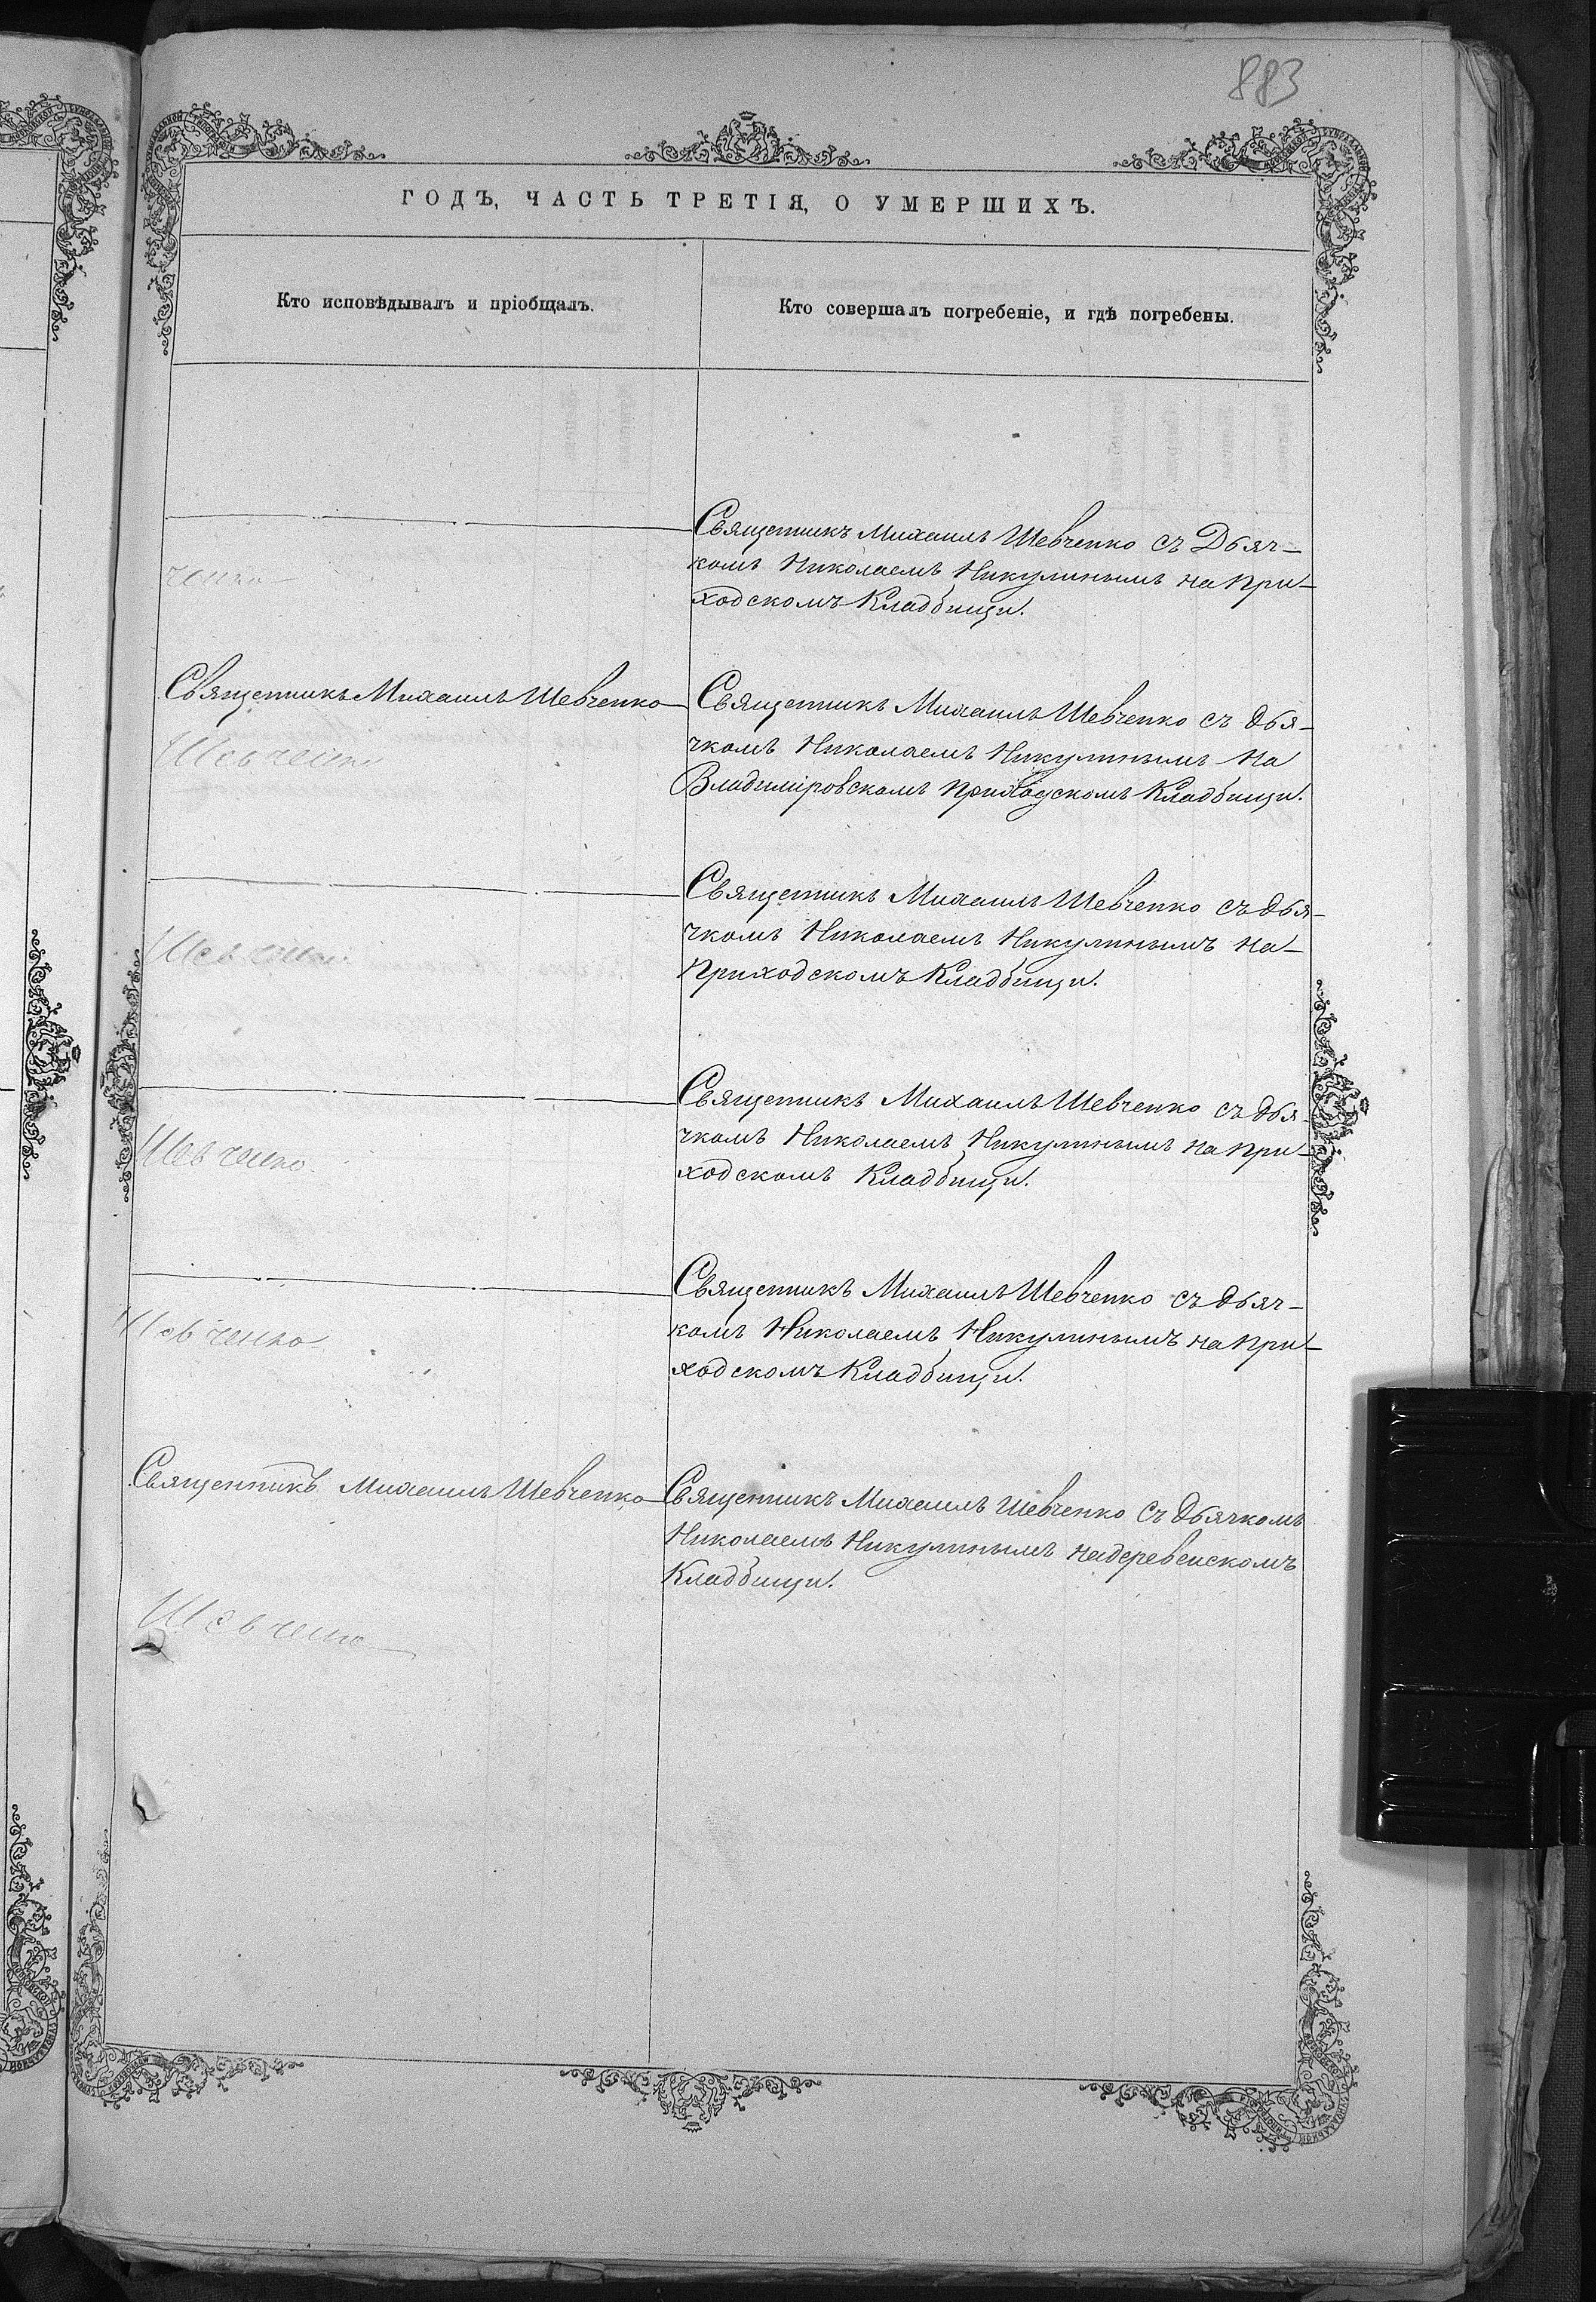 883
ГОДЪ, ЧАСТЬ ТРЕТІЯ, О УМЕРШИХЪ.
Кто исповѣдывалъ и пріобщалъ.
Кто совершалъ погребеніе, и гдѣ погребены.
Священникъ Михаилъ Шевченко съ Дьяч-
комъ Николаемъ Никулинымъ на При-
ходскомъ Кладбищи.
ченко
Священникъ Михаилъ Шевченко
Шевченко
Священникъ Михаилъ Шевченко съ дья-
чкомъ Николаемъ Никулинымъ на
Владиміровскомъ приходскомъ Кладбищи.
Шевченко
Священникъ Михаилъ Шевченко съ дья-
чкомъ Николаемъ Никулинымъ на-
Приходскомъ Кладбищи.
Шевченко
Священникъ Михаилъ Шевченко съ дья-
чкомъ Николаемъ Никулинымъ на При-
ходскомъ Кладбищи.
Шевченко
Священникъ Михаилъ Шевченко съ дьяч-
комъ Николаемъ Никулинымъ на При-
ходскомъ Кладбищи.
Священникъ Михаилъ Шевченко
Шевченко
Священникъ Михаилъ Шевченко съ дьячкомъ
Николаемъ Никулинымъ на деревенскомъ
Кладбищи.